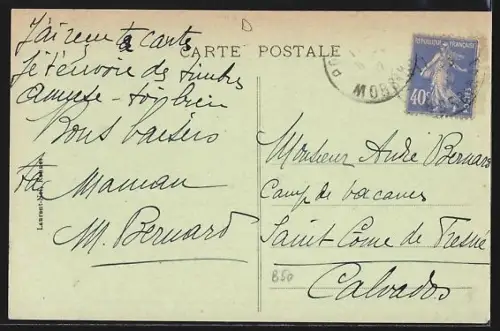 J'ai reçu ta carte
CARTE POSTALE
Je t'envoie des timbres
amuse-toi bien
Bons baisers
ta Maman
M. Bernard
Monsieur André Bernard
Camp de vacances
Saint Côme de Fresné
Calvados
B50
REPUBLIQUE FRANÇAISE
40c
POSTES
MORBIHAN